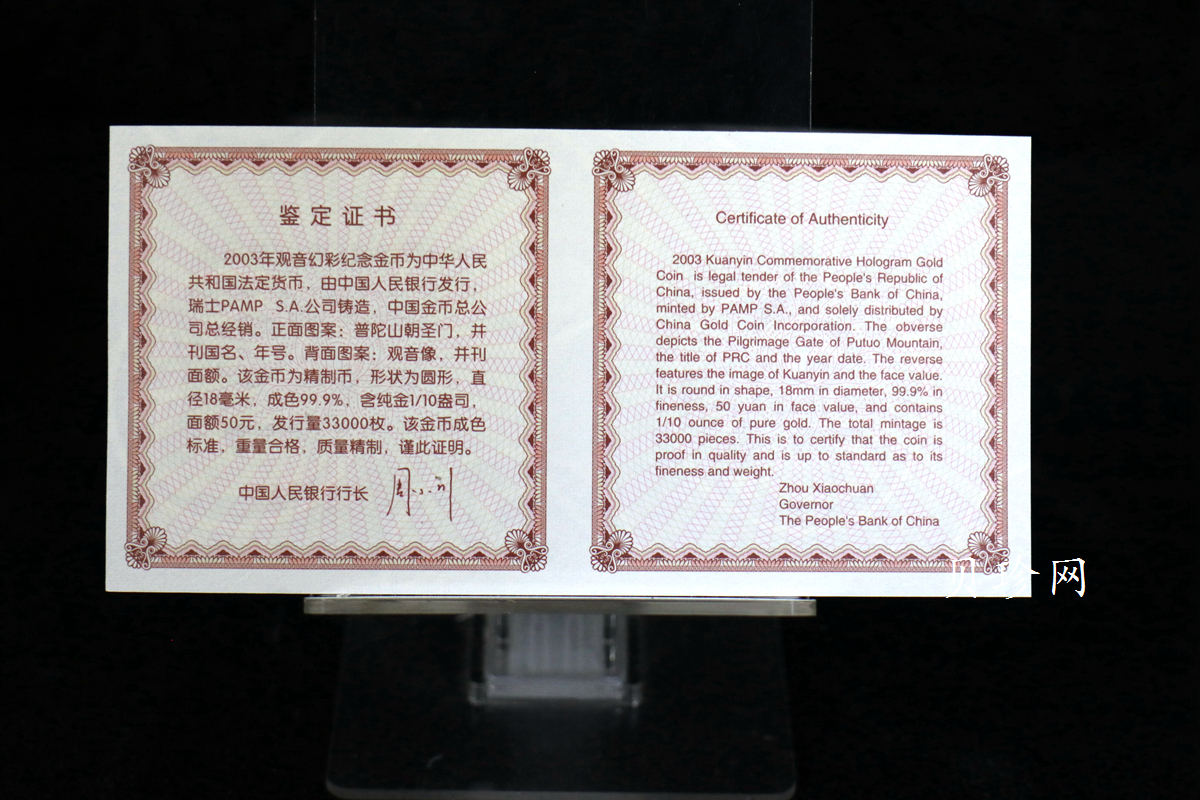 鉴定证书
2003年观音幻彩纪念金币为中华人民
共和国法定货币，由中国人民银行发行，
瑞士PAMP S.A.公司铸造，中国金币总公
司总经销。正面图案：普陀山朝圣门，并
刊国名、年号。背面图案：观音像，并刊
面额。该金币为精制币，形状为圆形，直
径18毫米，成色99.9%，含纯金1/10盎司，
面额50元，发行量33000枚。该金币成色
标准，重量合格，质量精制，谨此证明。
中国人民银行行长
Certificate of Authenticity
2003 Kuanyin Commemorative Hologram Gold
Coin is legal tender of the People's Republic of
China, issued by the People's Bank of China,
minted by PAMP S.A., and solely distributed by
China Gold Coin Incorporation. The obverse
depicts the Pilgrimage Gate of Putuo Mountain,
the title of PRC and the year date. The reverse
features the image of Kuanyin and the face value.
It is round in shape, 18mm in diameter, 99.9% in
fineness, 50 yuan in face value, and contains
1/10 ounce of pure gold. The total mintage is
33000 pieces. This is to certify that the coin is
proof in quality and is up to standard as to its
fineness and weight.
Zhou Xiaochuan
Governor
The People's Bank of China
网